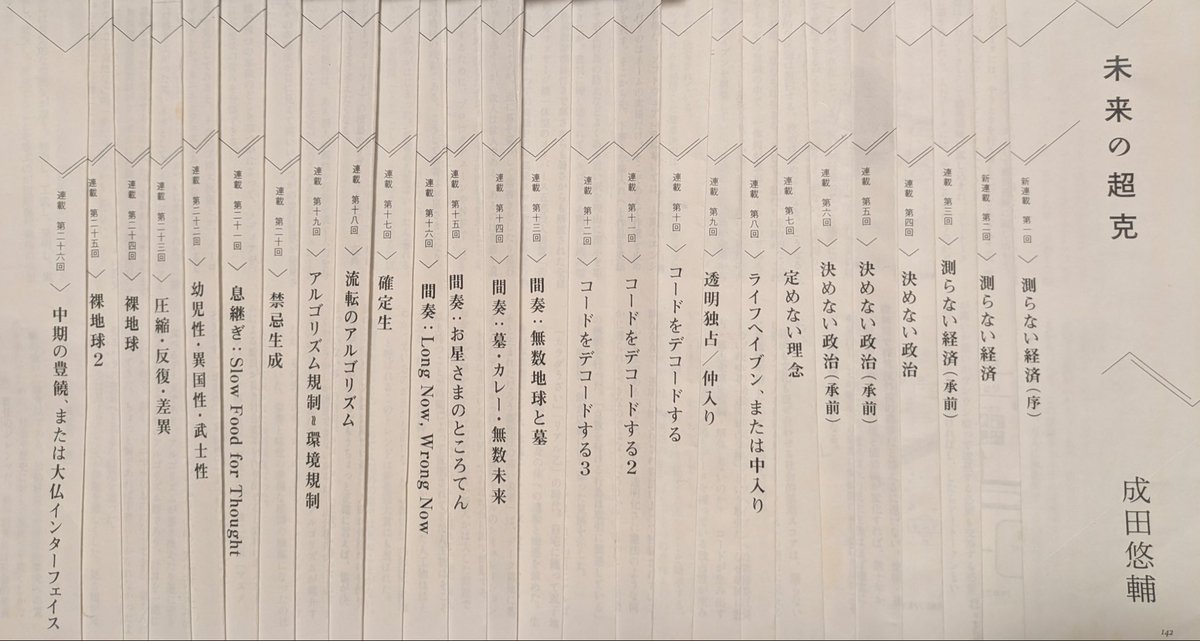 未来の超克
成田悠輔
新連載 第一回 測らない経済(序)
新連載 第二回 測らない経済
連載 第三回 測らない経済(承前)
連載 第四回 決めない政治
連載 第五回 決めない政治(承前)
連載 第六回 決めない政治(承前)
連載 第七回 定めない理念
連載 第八回 ライフヘイブン、または中入り
連載 第九回 透明独占/仲入り
連載 第十回 コードをデコードする
連載 第十一回 コードをデコードする2
連載 第十二回 コードをデコードする3
連載 第十三回 間奏:無数地球と墓
連載 第十四回 間奏:墓・カレー・無数未来
連載 第十五回 間奏:お星さまのところてん
連載 第十六回 間奏:Long Now, Wrong Now
連載 第十七回 確定生
連載 第十八回 流転のアルゴリズム
連載 第十九回 アルゴリズム規制≈環境規制
連載 第二十回 禁忌生成
連載 第二十一回 息継ぎ:Slow Food for Thought
連載 第二十二回 幼児性・異国性・武士性
連載 第二十三回 圧縮・反復・差異
連載 第二十四回 裸地球
連載 第二十五回 裸地球2
連載 第二十六回 中期の豊饒、または大仏インターフェイス
142